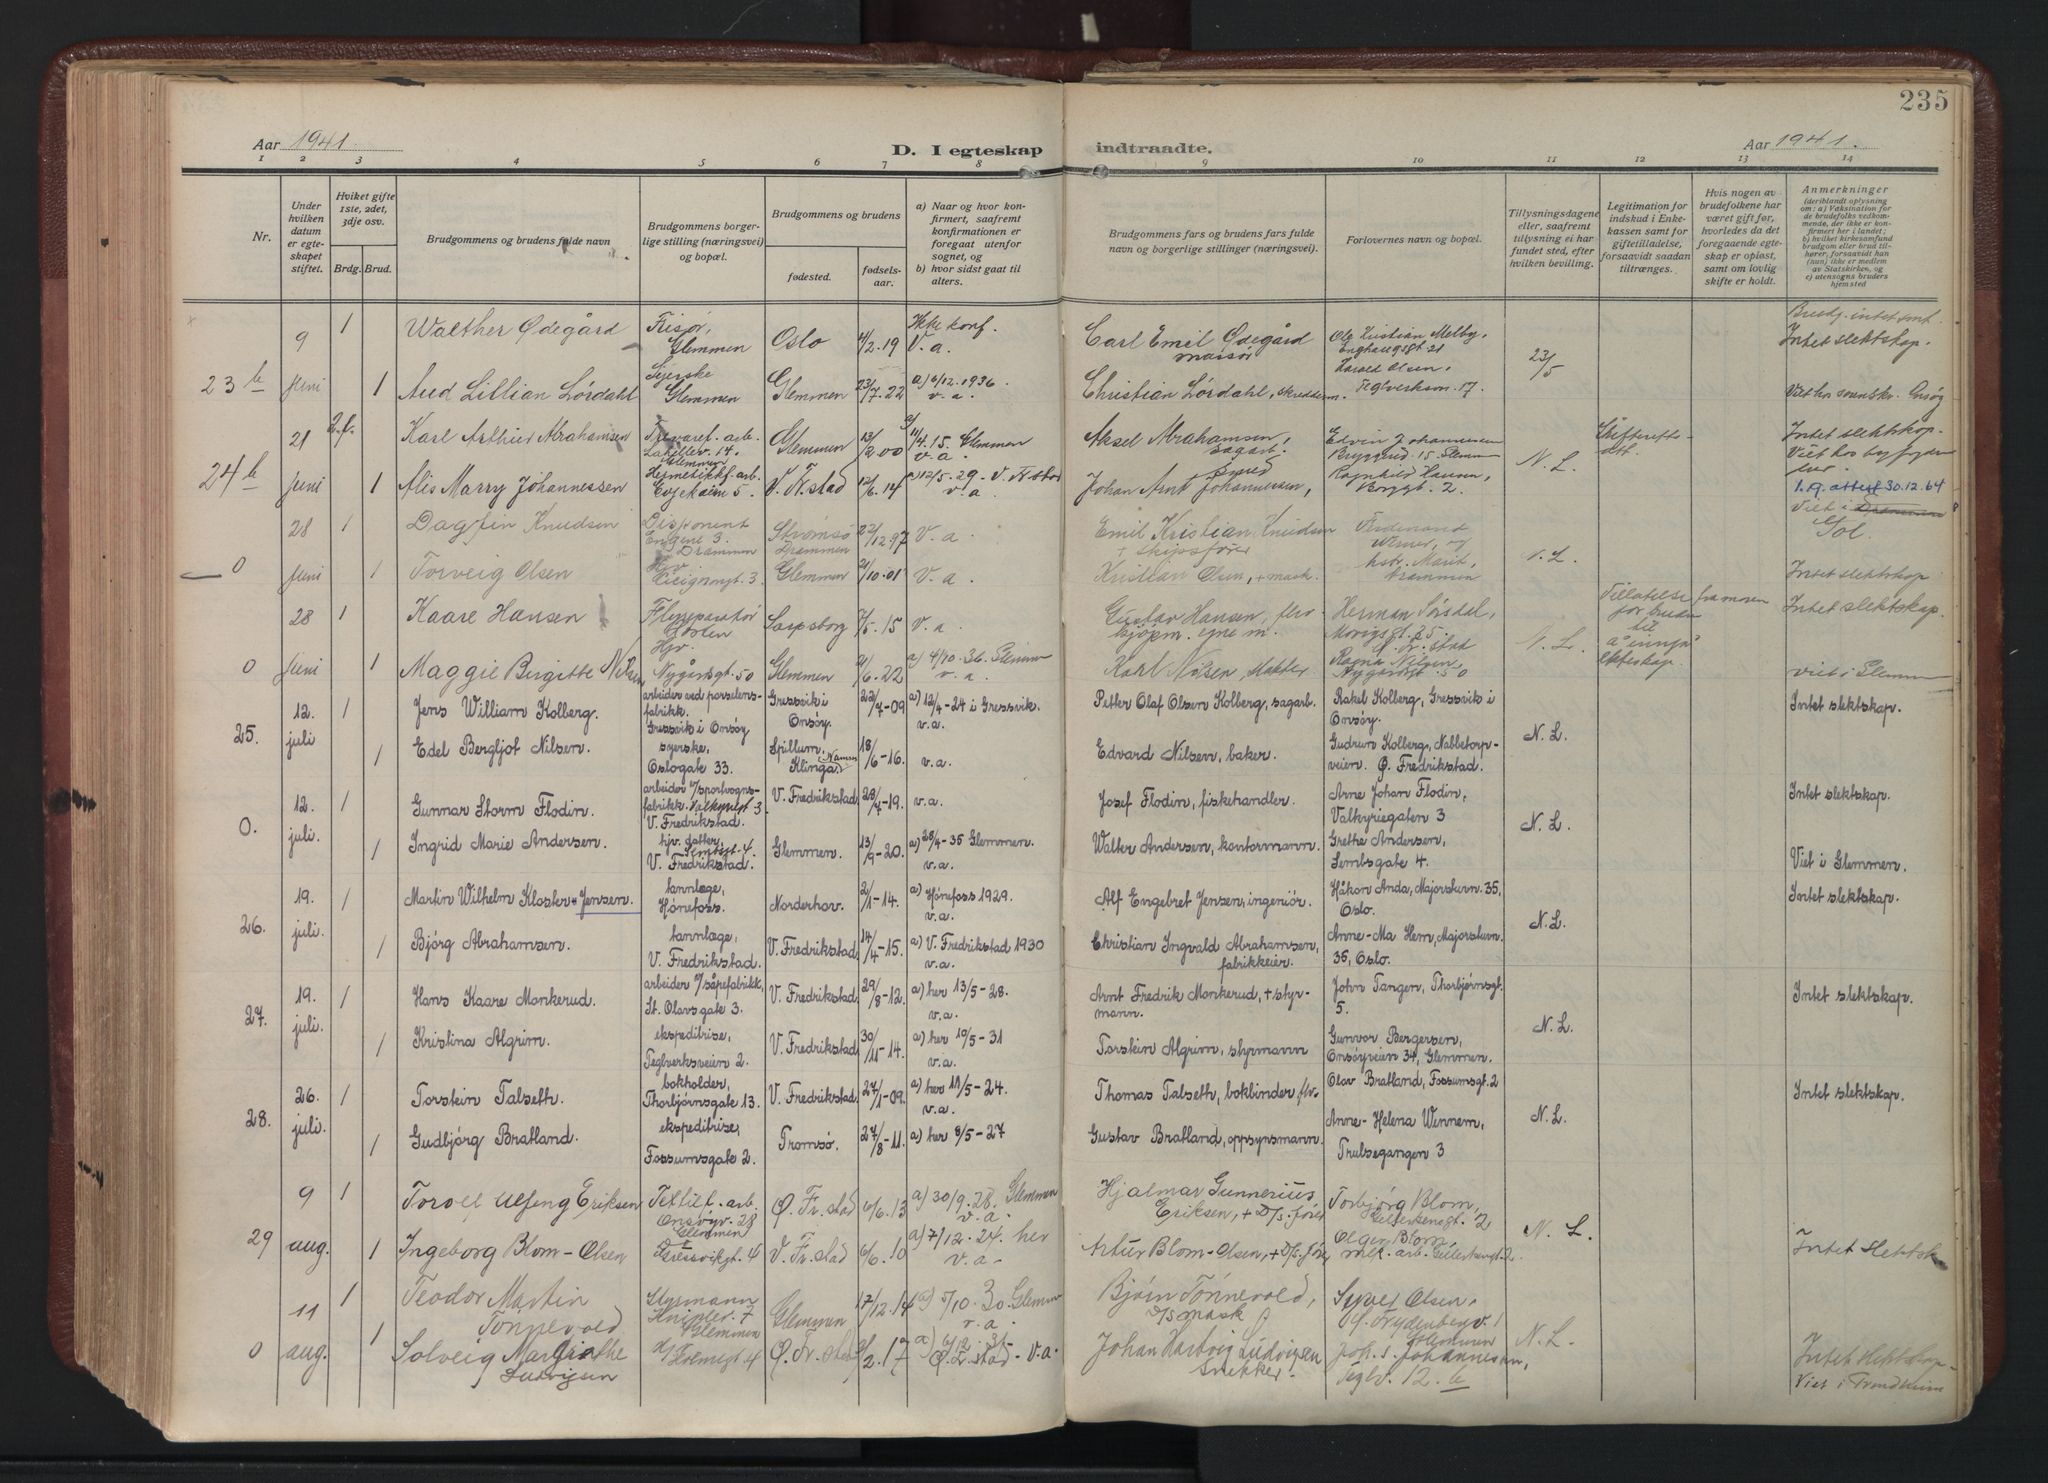 235
Aar 1941
D. I egteskap
indtraadte.
Aar 1941.
1 2 3 4 5 6 7 8 9 10 11 12 13 14
Nr.
Under hvilken datum er egteskapet stiftet.
Hviket gifte 1ste, 2det, 3dje osv.
Brdg. Brud.
Brudgommens og brudens fulde navn
Brudgommens borgerlige stilling (næringsvei) og bopæl.
Brudgommens og brudens
fødested.
fødselsaar.
a) Naar og hvor konfirmert, saafremt konfirmationen er foregaat utenfor sognet, og
b) hvor sidst gaat til alters.
Brudgommens fars og brudens fars fulde navn og borgerlige stillinger (næringsvei).
Forlovernes navn og bopæl.
Tillysningsdagene eller, saafremt tillysning ei har fundet sted, efter hvilken bevilling.
Legitimation for indskud i Enkekassen samt for giftetilladelse, forsaavidt saadan tiltrænges.
Hvis nogen av brudefolkene har været gift før, hvorledes da det foregaaende egteskap er opløst, samt om lovlig skifte er holdt.
Anmerkninger
(deriblandt oplysning om: a) Vaksination for de brudefolks vedkommende, der ikke er konfirmert her i landet;
b) hvilket kirkesamfund brudgom eller brud tilhører, forsaavidt han (hun) ikke er medlem av Statskirken, og
c) utensogns bruders hjemsted
9 1 Walther Ødegård Frisør, Glemmen Oslo 4/2.19 Ikke konf. V.a. Carl Emil Ødegård massør Ole Kristian Melby, Enghaugsgt 21 23/5 Brudg. intet smt. Intet slektskap.
23 b juni 1 Aud Lillian Lørdahl Syerske Glemmen Glemmen 23/7.22 a) 6/12.1936 v.a. Christian Lørdahl, Harald Olsen, Teglverksm. 17.
21 2.f. Karl Arthur Abrahamsen Trevaref. arb. Glemmen Glemmen 13/2 00 11/4.15. Glemmen v.a. Aksel Abrahamsen, sagarb. Edvin Johannessen N.L. Intet slektskap.
24 b juni 1 Alis Marry Johannessen Hermetikkf. arb. Evjekaien 5. V. Fr.stad 12/6.14 a) 12/5-29. V. Fr.stad v.a. Johan Arnt Johannessen, smed Ragnhild Hansen, Brygt. 2. 1.9. attest 30.12.64
28 1 Dagfin Knudsen Disponent Engene 3. Drammen Strømsø Drammen 22/12.97 V.a. Emil Kristian Knudsen + skipsfører Ferdinand N.L. Viet i Gol.
0 juni 1 Torveig Olsen Hjv. 3. Glemmen 2/10.01 V.a. Kristian Olsen, + mask. Drammen Intet slektskap
28 1 Kaare Hansen Flyreparatør Horten Sarpsborg 7/5.15 V.a Gustav Hansen, Herman Sørdal, N.L. Tillatelse fra moren for bruden til å inngå ekteskap. Intet slektskap.
0 juni 1 Maggie Birgitte Nilsen Hjv. Nygårdsgt. 50 Glemmen 2/6.22 a) 4/10.36. Glemmen v.a. Karl Nilsen, Ragna Nilsen, Nygårdsgt. 50 Viet i Glemmen
12. 1 Jens William Kolberg. arbeider ved porselensfabrikk. Gressvik i Onsøy Gressvik i Onsøy 22/7-09 a) 12/4-24 i Gressvik. v.a. Petter Olaf Olsen Kolberg, sagarb. Rakel Kolberg, Gressvik i Onsøy. Intet slektskap.
25. juli 1 Edel Bergljot Nilsen. syerske, Oslogate 33. Spillum, Klinga. 18/6-16. v.a. Edvard Nilsen, baker. Gudrun Kolberg, Nabbetorpveien. Ø. Fredrikstad. N.L.
12. 1 Gunnar Storm Flodin arbeider v/sportvognsfabrikk. Valkyriegt 3. V. Fredrikstad. V. Fredrikstad. 28/4-19. v.a. Josef Flodin, fiskehandler. Arne Johan Flodin, Valkyriegaten 3 Intet slektskap.
0. juli. 1 Ingrid Marie Andersen. hjv. datter, Lembsgt. 4. V. Fredrikstad. Glemmen. 13/9-20. a) 28/4-35 Glemmen. v.a. Walter Andersen, kontormann. Grethe Andersen, Lembsgate 4. N.L. Viet i Glemmen.
19. 1 Martin Wilhelm Kloster-Jensen. tannlæge, Hønefoss. Norderhov. 2/1-14. a) Hønefoss 1929. v.a. Alf Engebret Jensen, ingeniør. Håkon Anda, Majorstuvn. 35, Oslo. Intet slektskap.
26. juli. 1 Bjørg Abrahamsen. tannlæge, V. Fredrikstad. V. Fredrikstad. 14/4-15. a) V. Fredrikstad 1930 v.a. Christian Ingvald Abrahamsen, fabrikkeier. Anne-Ma Hem, Majorstuvn. 35, Oslo. N.L.
19. 1 Hans Kaare Monkerud. arbeider v/såpefabrikk, St. Olavsgate 3. V. Fredrikstad 29/8-12. a) her 13/5-28. v.a. Arnt Fredrik Monkerud, + styrmann. John Tangen, Thorbjørnsgt. 5. Intet slektskap.
27. juli. 1 Kristina Algrim. ekspeditrise, Teglverksveien 2. V. Fredrikstad 30/11-14. a) her 10/5-31 v.a. Torstein Algrim, styrmann Gunvor Bergersen, Onsøyveien 34, Glemmen. N.L.
26. 1 Torstein Talseth. bokholder, Thorbjørnsgate 13. V. Fredrikstad 27/1-09. a) her 11/5-24. v.a. Thomas Talseth, bokbinder Olav Bratland, Fossumsgt. 2 Intet slektskap.
28. juli. 1 Gudbjørg Bratland. ekspeditrise, Fossumsgate 2. Tromsø. 27/8-11. a) her 8/5-27 Gustav Bratland, oppsynsmann. Anne-Helena Winnem, Trulsegangen 3 N.L.
9 1 Torolf Ulfeng Eriksen Textilf. arb. Onsøyv. 28 Glemmen Ø. Fr.stad 6/6.13 a) 30/9.28. Glemmen v.a. Hjalmar Gunnerius Eriksen, + D/s. fører Torbjørg Blom, 2
29 aug. 1 Ingeborg Blom-Olsen Gressvikgt. 4 V. Fr.stad 6/6.10 a) 7/12.24. her v.a. Artur Blom-Olsen, + D/s. fører Olger Blom, mek. arb. N.L. Intet slektsk
11 1 Teodor Martin Tønnevold Styrmann Glemmen Glemmen 17/12.14 a) 5/10.30. Glemmen v.a. Bjørn Tønnevold, D/s mask Syver Olsen,
0 aug. 1 Solveig Margrethe Ludvigsen Ø. Fr.stad 2/2.17 Ø. Fr.stad - v.a. Johan Hartvig Ludvigsen snekker. Joh. S. Johannessen, Teglv. 12 b N.L. Intet slektskap Viet i Trondheim